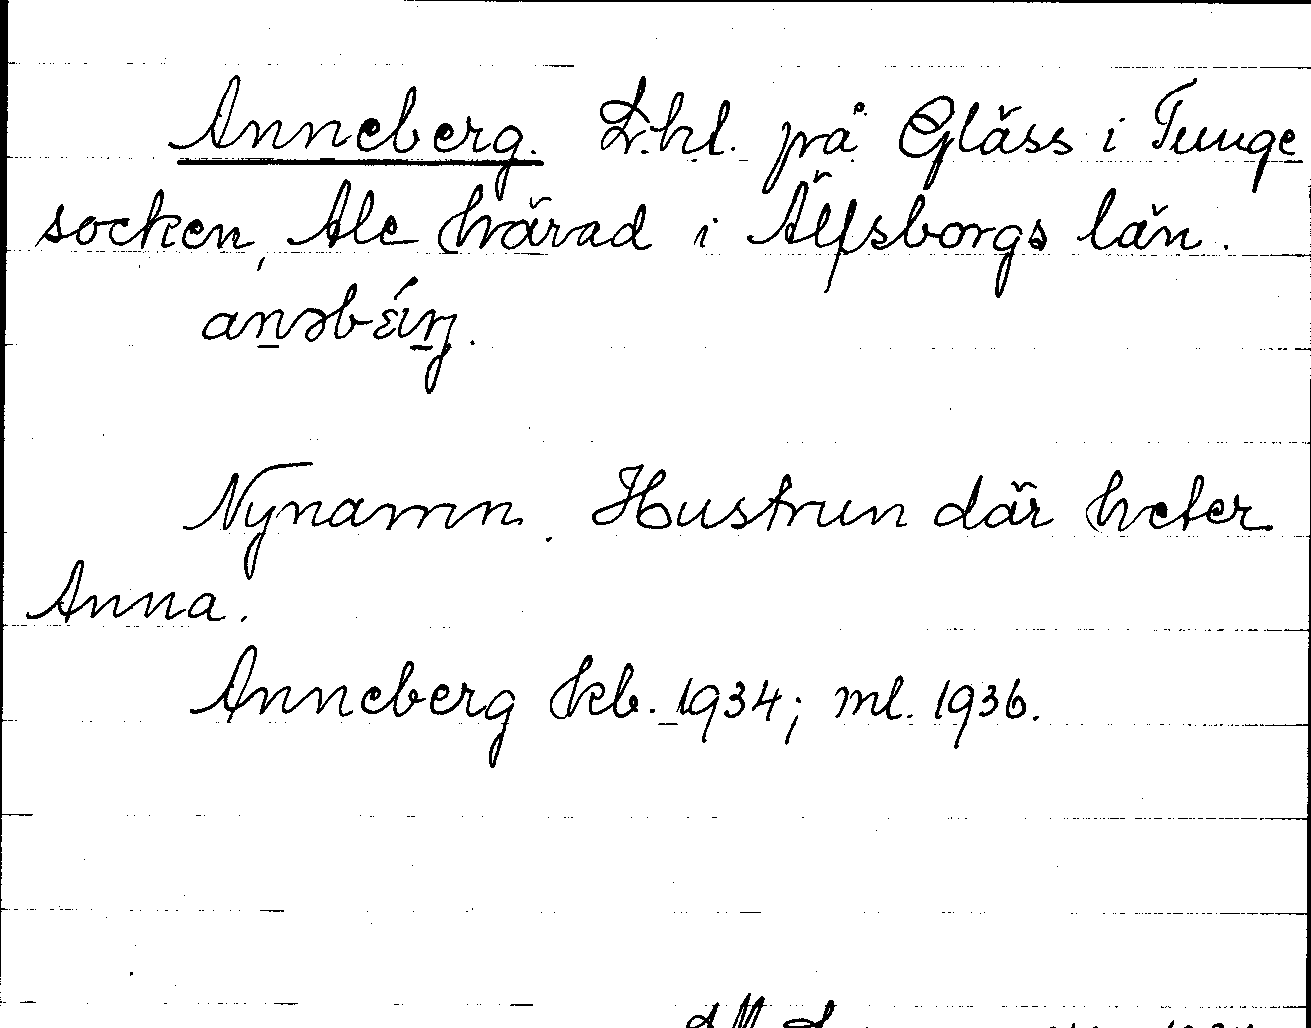 Anneberg. L.hl. på Gläss i Tunge
socken, Ale härad i Älfsborgs län.

Nynamn. Hustrun där heter
Anna.
Anneberg kb. 1934; ml. 1936.